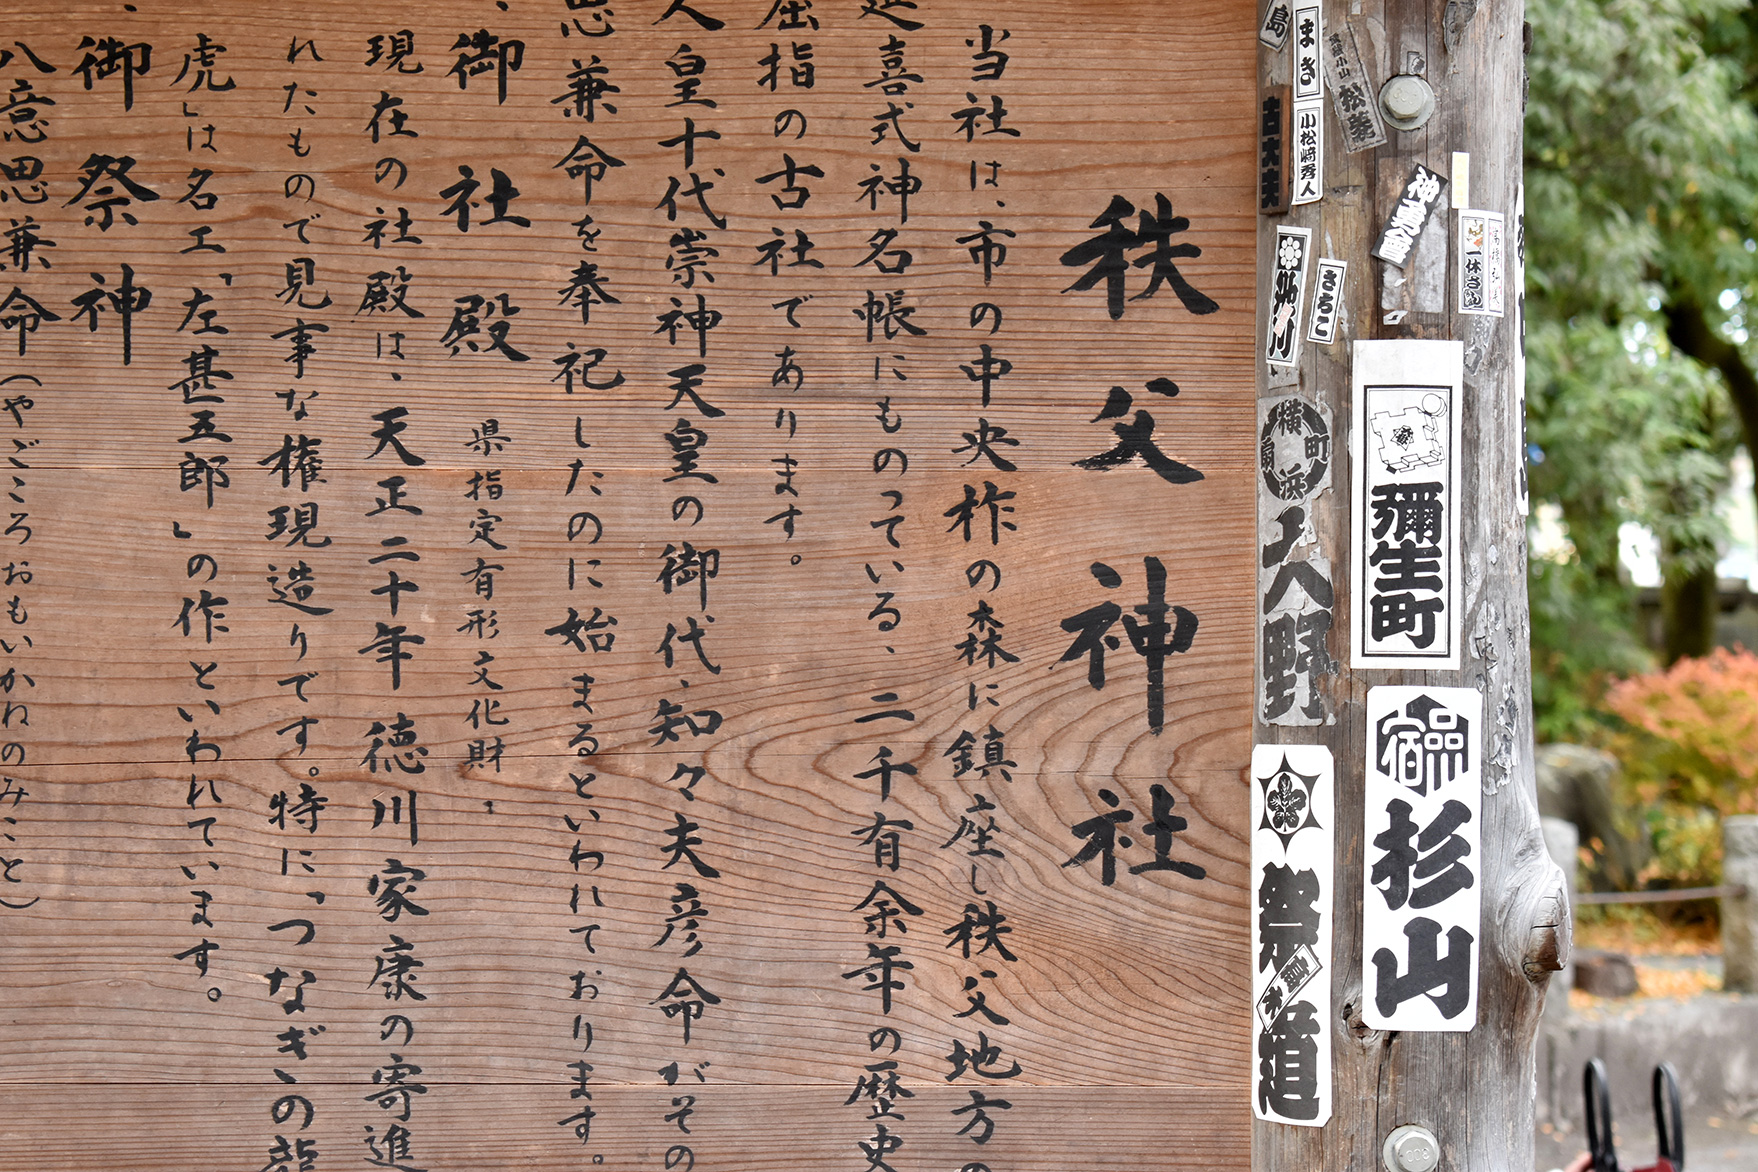 秩父神社
当社は、市の中央柞の森に鎮座し秩父地方の
延喜式神名帳にものっている、二千有余年の歴史
屈指の古社であります。
人皇十代崇神天皇の御代、知々夫彦命がその
思兼命を奉祀したのに始まるといわれております。
御社殿 県指定有形文化財
現在の社殿は、天正二十年徳川家康の寄進
れたもので見事な権現造りです。特に「つなぎの龍
虎」は名工「左甚五郎」の作といわれています。
御祭神
八意思兼命(やごころおもいかねのみこと)
島
まき
小松﨑秀人
松葊
古大夫
神勇會
一休さん
きちこ
横町
扇浜
久野
彌生町
杉山
宿
祭道